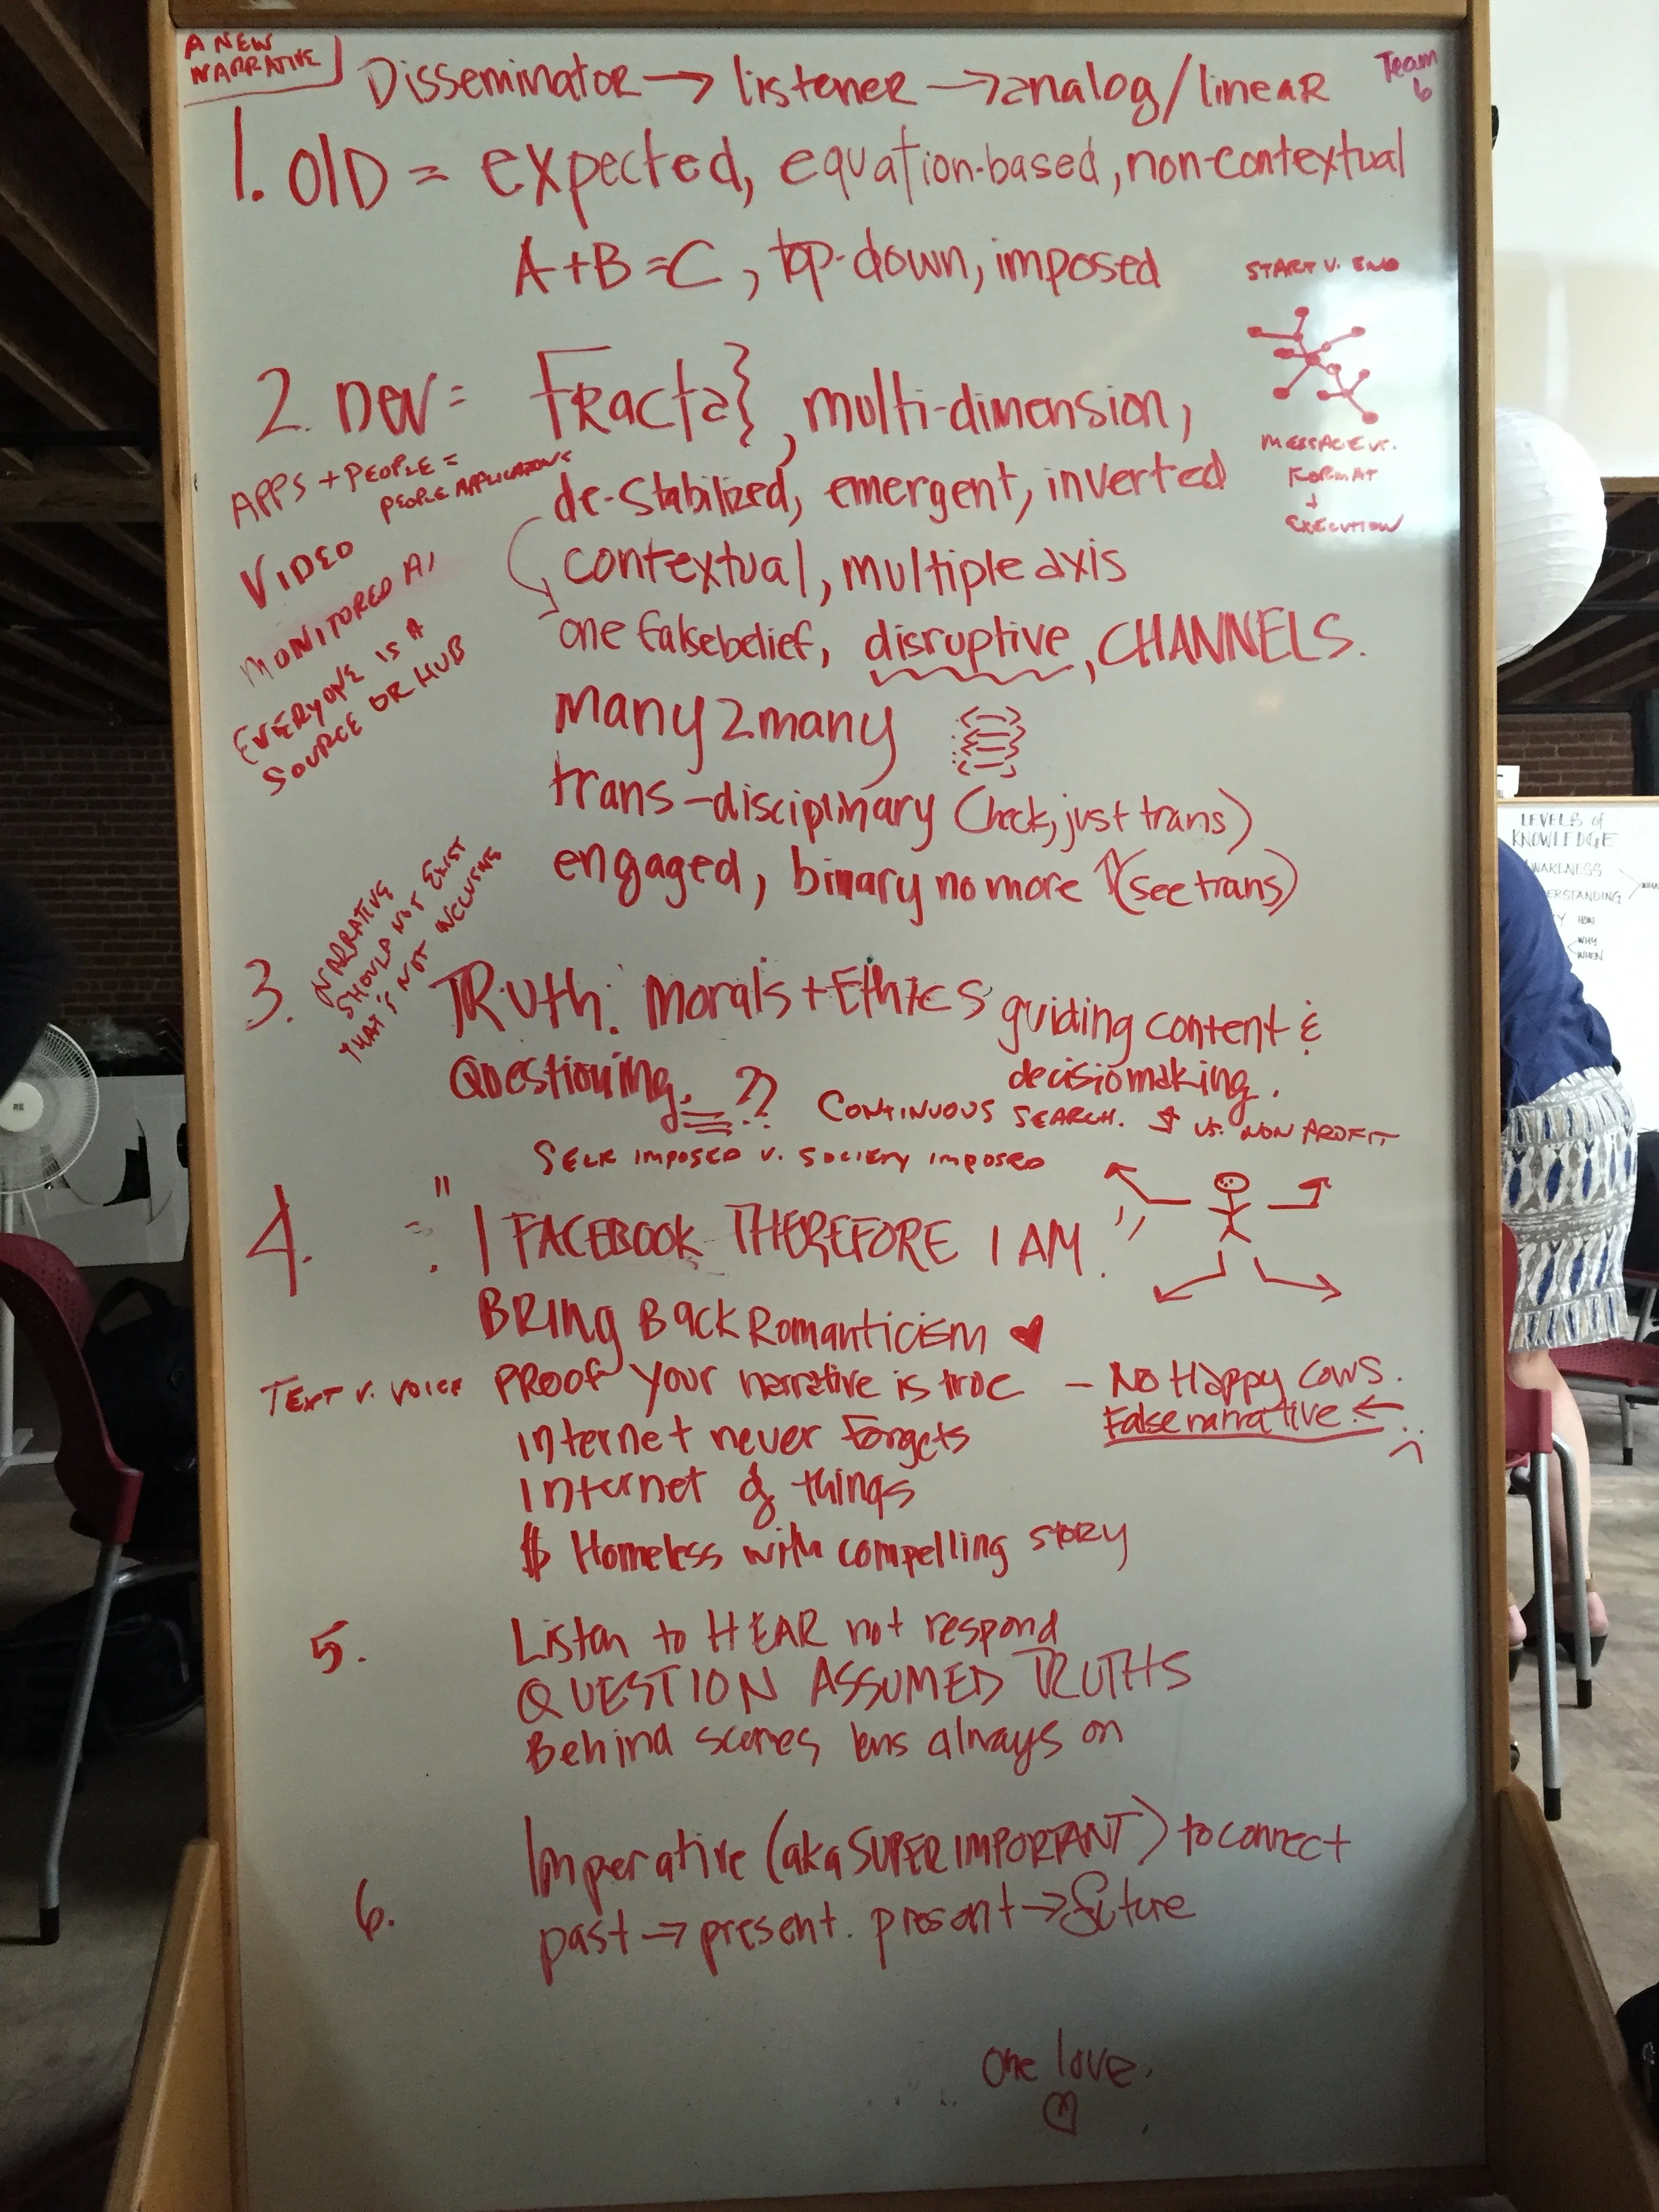 A NEW
NARRATIVE
Team
6
Disseminator → listener → analog/linear
1. OLD = expected, equation-based, non-contextual
A+B=C, top-down, imposed
START V. END
2. New = Fractal, multi-dimension,
MESSAGE vs.
FORMAT
+
EXECUTION
APPS + PEOPLE =
PEOPLE APPLICATIONS
de-stabilized, emergent, inverted
VIDEO
contextual, multiple axis
MONITORED AI
one falsebelief, disruptive, CHANNELS.
EVERYONE IS A
SOURCE OR HUB
many2many
trans-disciplinary (heck, just trans)
engaged, binary no more ↑(see trans)
NARRATIVE
SHOULD NOT EXIST
THAT'S NOT INCLUSIVE
3. TRuth: Morals + Ethics guiding content &
decisiomaking.
Questioning. ??
CONTINUOUS SEARCH. $ vs. NON PROFIT
SELF IMPOSED V. SOCIETY IMPOSED
4. "I FACEBOOK THEREFORE I AM."
BRing Back Romanticism ♥
TEXT V. VOICE
PROOF your narrative is true — No Happy cows.
False narrative. ←
internet never forgets
Internet of things
$ Homeless with compelling story
5. Listen to HEAR not respond
QUESTION ASSUMED TRUTHS
Behind scenes lens always on
6. Imperative (aka SUPER IMPORTANT) to connect
past → present. present → future
One love.
LEVELS of
KNOWLEDGE
HOW
WHY
WHEN